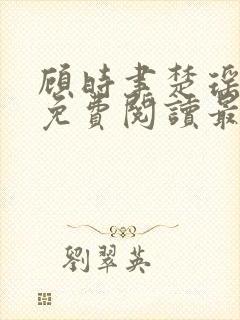 顾時書楚瑶
免費閱讀最
劉翠英